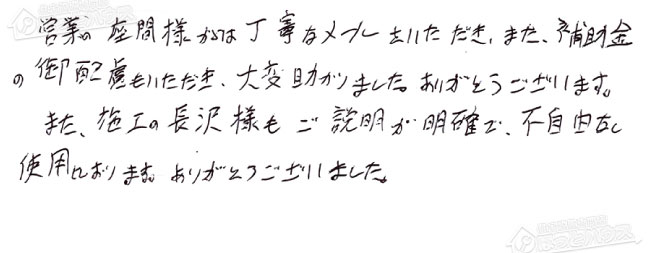 営業の座間様からは丁寧なメールをいただき、また、補助金
の御配慮もいただき、大変助かりました。ありがとうございます。
また、施工の長沢様もご説明が明確で、不自由なく
使用しております。ありがとうございました。